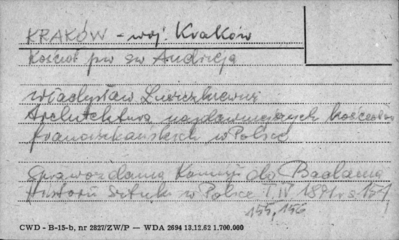 KRAKÓW - woj. Kraków
Kościół pw św Andrzeja
Władysław Łuszczkiewicz
Architektura najdawniejszych kościołów
franciszkańskich w Polsce
Sprawozdania Komisji do Badania
Historii Sztuki w Polsce T. IV 1891 s 151
155, 156
CWD - B-15-b, nr 2827/ZW/P — WDA 2694 13.12.62 1.700.000